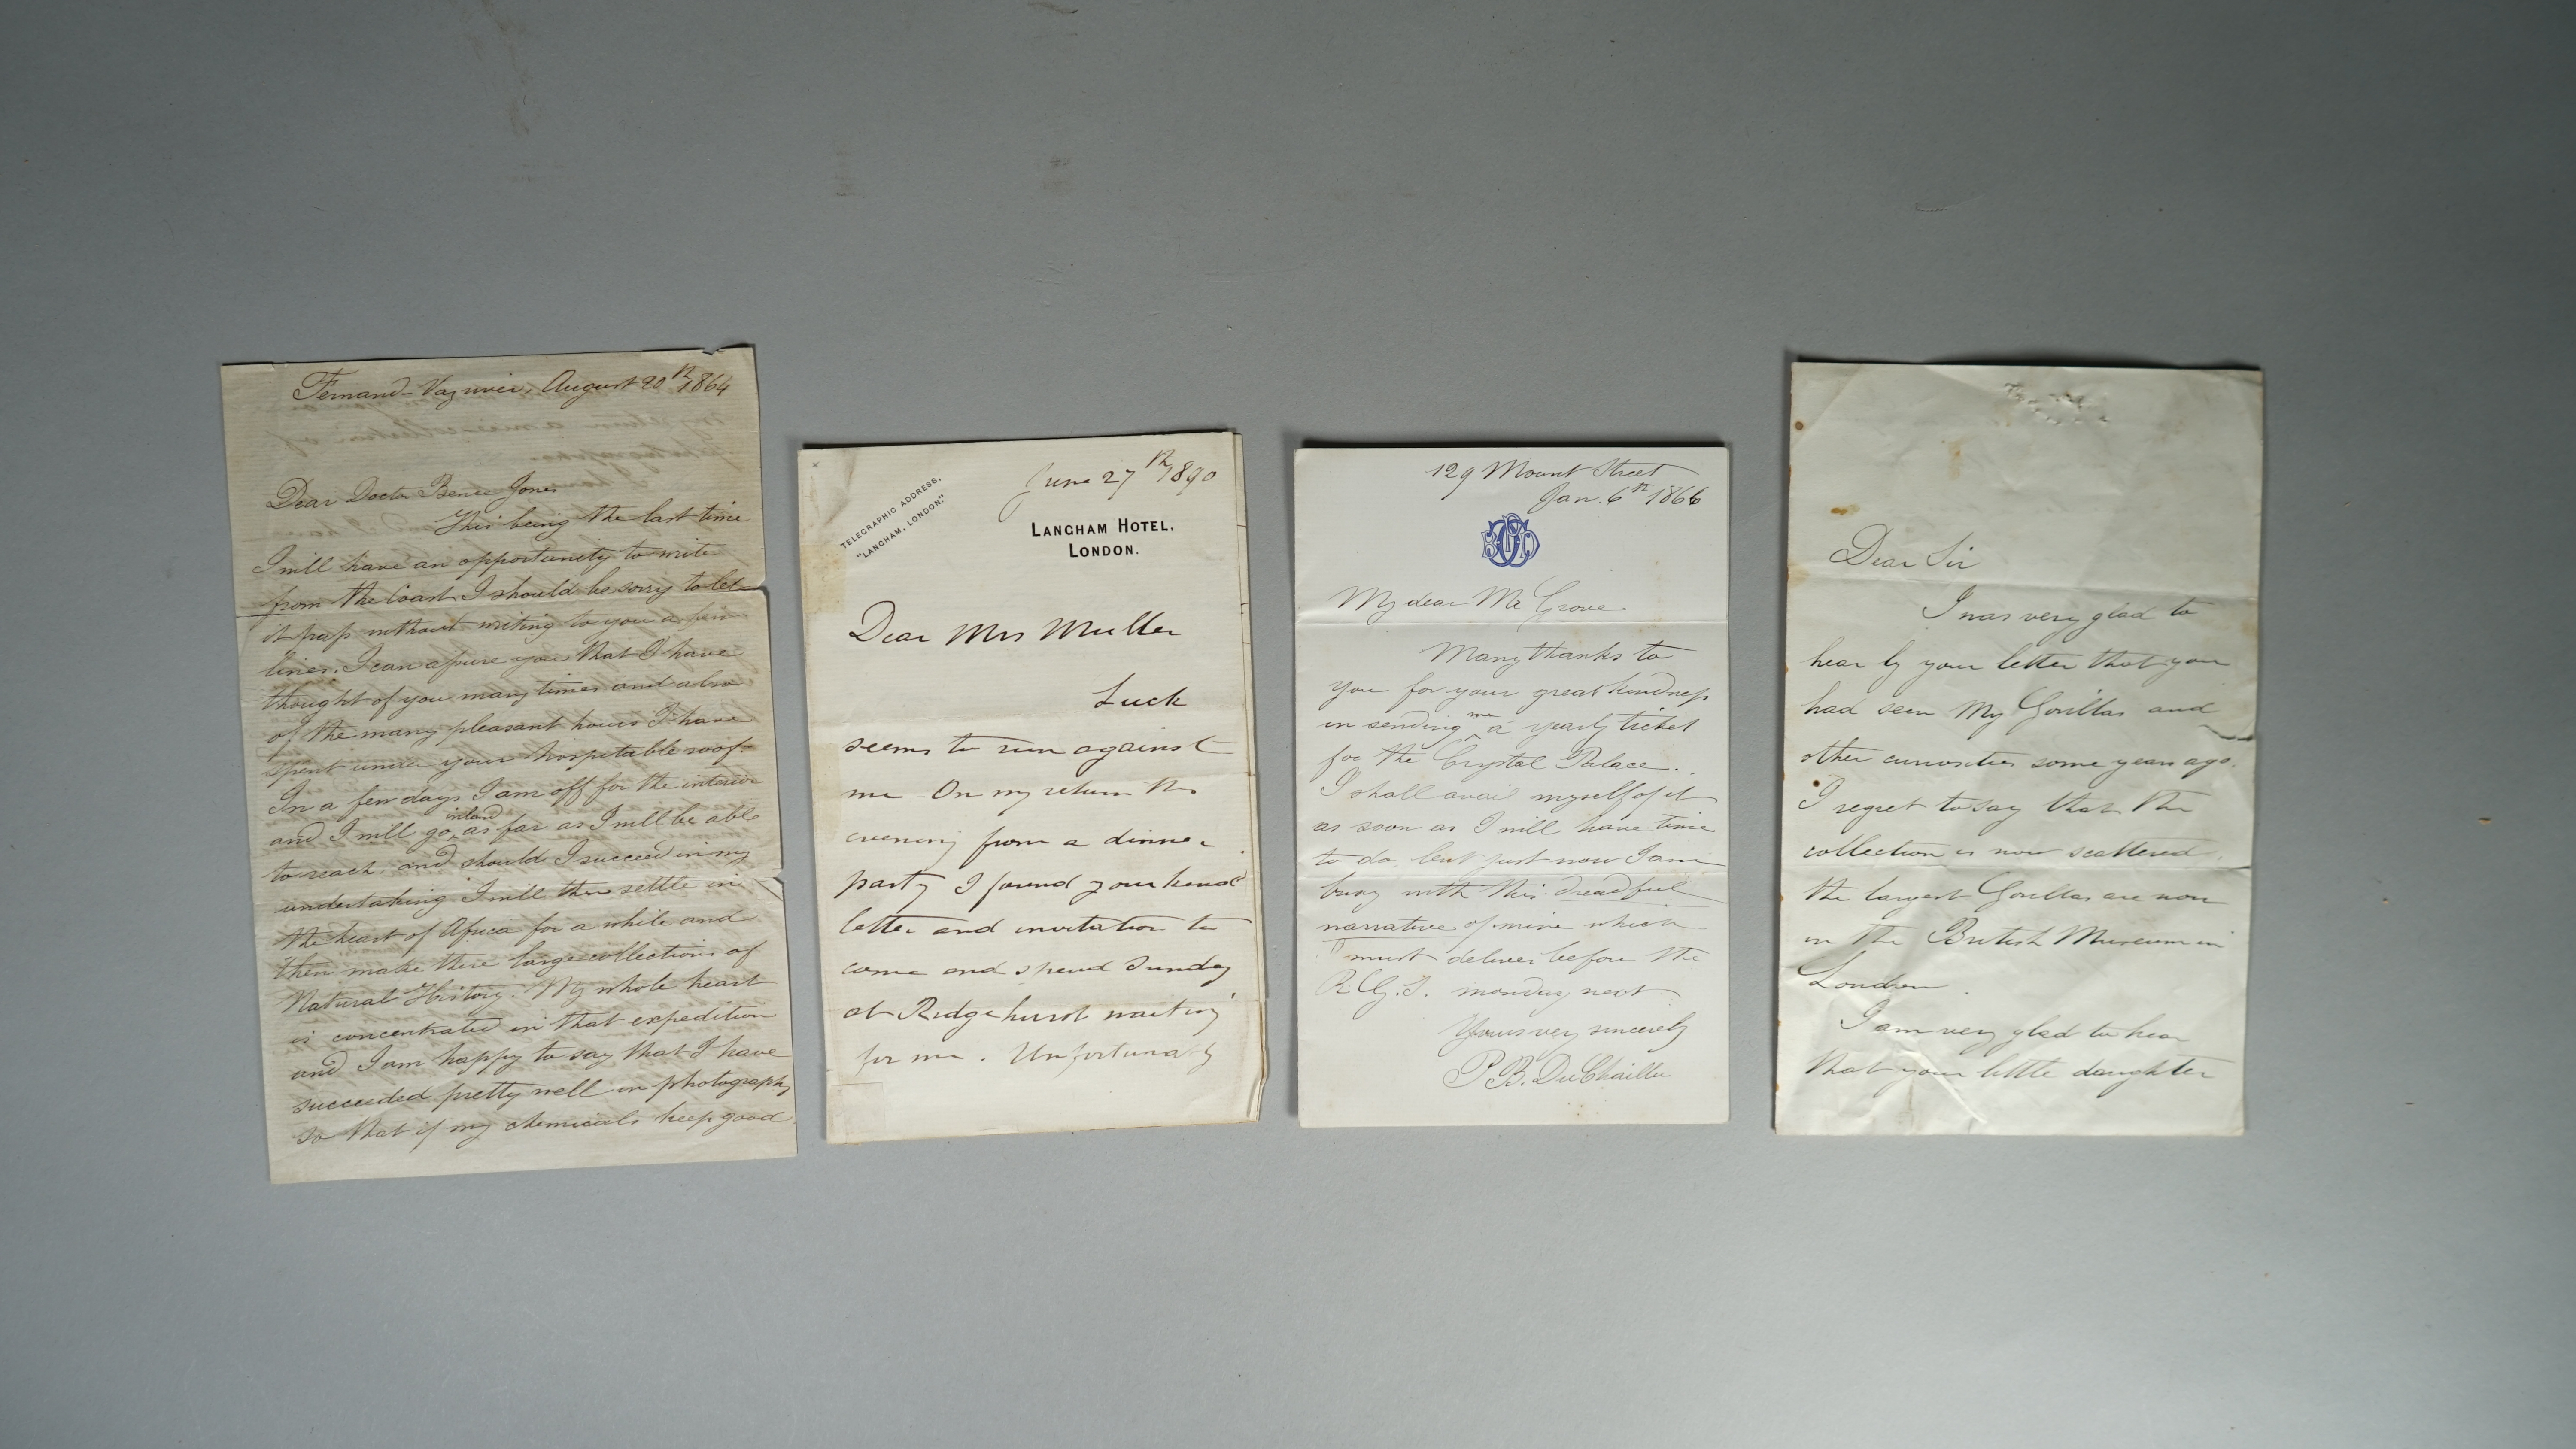 Fernand-Vaz river, August 20th 1864
Dear Doctor Bence Jones
This being the last time
I will have an opportunity to write
from the Coast I should be sorry to let
it pass without writing to you a few
lines. I can assure you that I have
thought of you many times and also
of the many pleasant hours I have
spent under your hospitable roof.
In a few days I am off for the interior
inland
and I will go ^ as far as I will be able
to reach, and should I succeed in my
undertaking I will then settle in
the heart of Africa for a while and
then make there large collections of
Natural History. My whole heart
is concentrated in that expedition
and I am happy to say that I have
succeeded pretty well in photography
so that if my chemicals keep good
June 27th 1890
TELEGRAPHIC ADDRESS,
"LANGHAM, LONDON."
LANGHAM HOTEL,
LONDON.
Dear Mrs Muller
Luck
seems to run against
me On my return this
evening from a dinner
party I found your kind
letter and invitation to
come and spend Sunday
at Ridgehurst waiting
for me. Unfortunatly
129 Mount Street
Jan. 6th 1866
My dear Mr Grove
Many thanks to
you for your great kindness
in sending ^ me a yearly ticket
for the Crystal Palace.
I shall avail myself of it
as soon as I will have time
to do, but just now I am
busy with this dreadful
narrative of mine which
I must deliver before the
R.G.S. monday next
Yours very sincerely
P.B. Du Chaillu
Dear Sir
I was very glad to
hear by your letter that you
had seen My Gorillas and
other curiosities some years ago.
I regret to say that the
collection is now scattered,
the largest Gorillas are now
in the British Museum in
London.
I am very glad to hear
that your little daughter